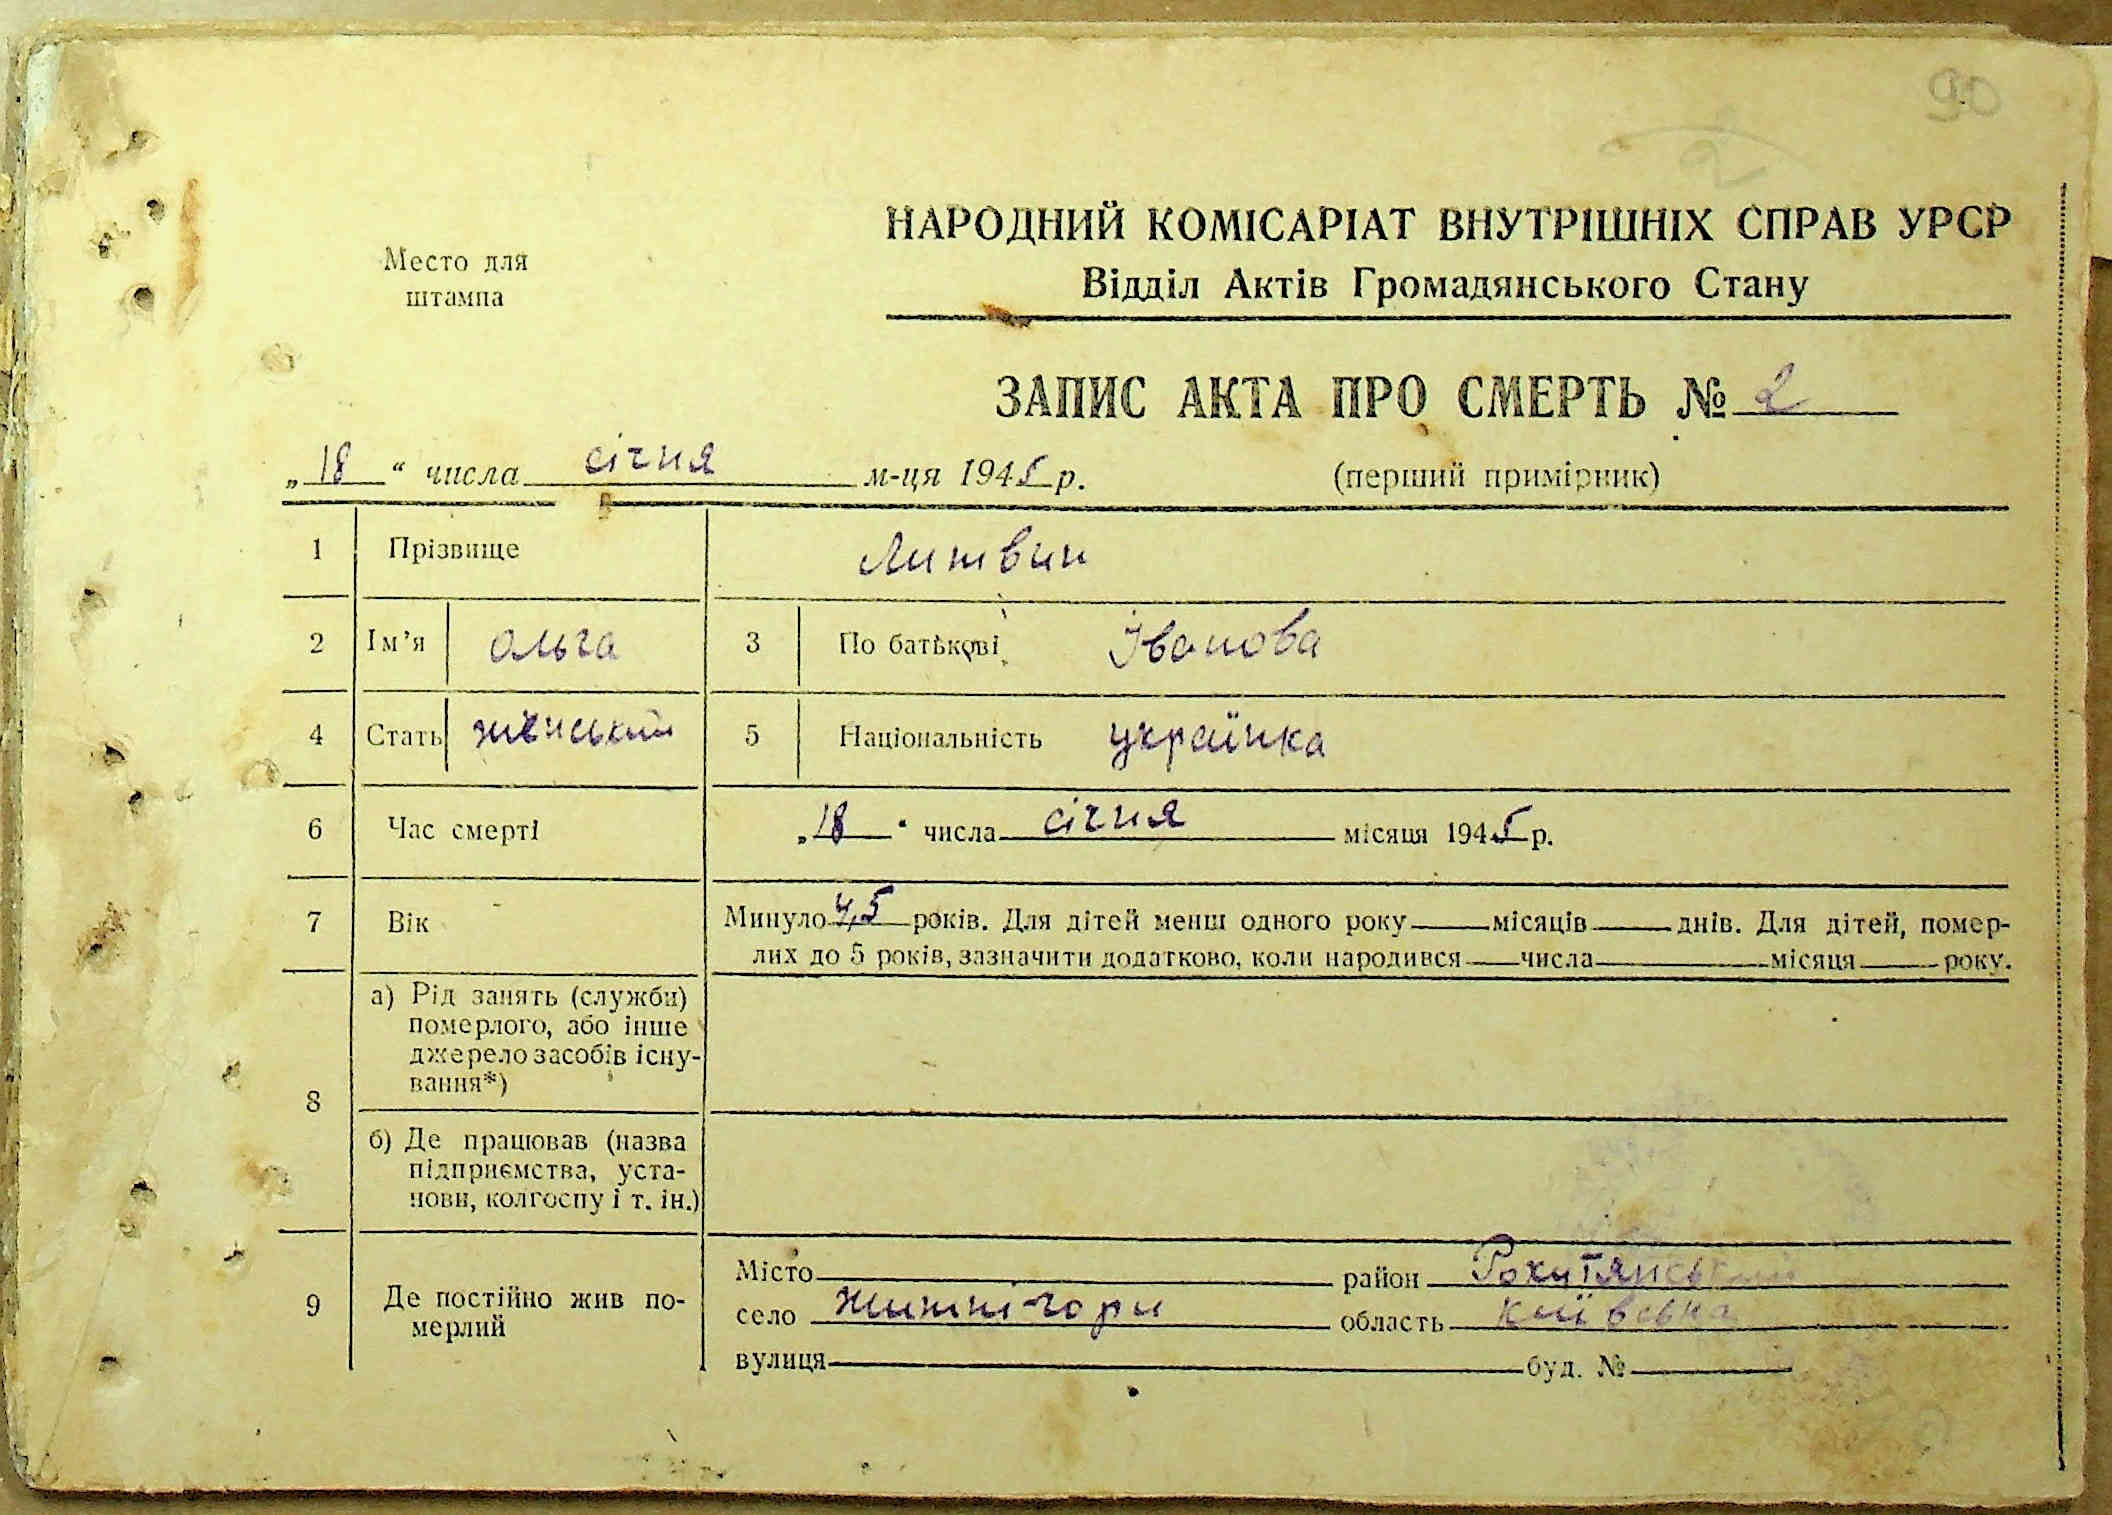 90
2
НАРОДНИЙ КОМІСАРІАТ ВНУТРІШНІХ СПРАВ УРСР
Место для
штампа
Відділ Актів Громадянського Стану
ЗАПИС АКТА ПРО СМЕРТЬ № 2
„18“ числа січня м-ця 1945 р.
(перший примірник)
1 Прізвище Литвин
2 Ім’я Ольга 3 По батькові Іванова
4 Стать жіночький 5 Національність українка
6 Час смерті „18“ числа січня місяця 1945 р.
7 Вік Минуло 4,5 років. Для дітей менш одного року місяців днів. Для дітей, помер-
лих до 5 років, зазначити додатково, коли народився числа місяця року.
8 а) Рід занять (служби)
померлого, або інше
джерело засобів існу-
вання*)
б) Де працював (назва
підприємства, уста-
нови, колгоспу і т. ін.)
9 Де постійно жив по-
мерлий
Місто район Рокитянський
село Житні-гори область Київська
вулиця буд. №